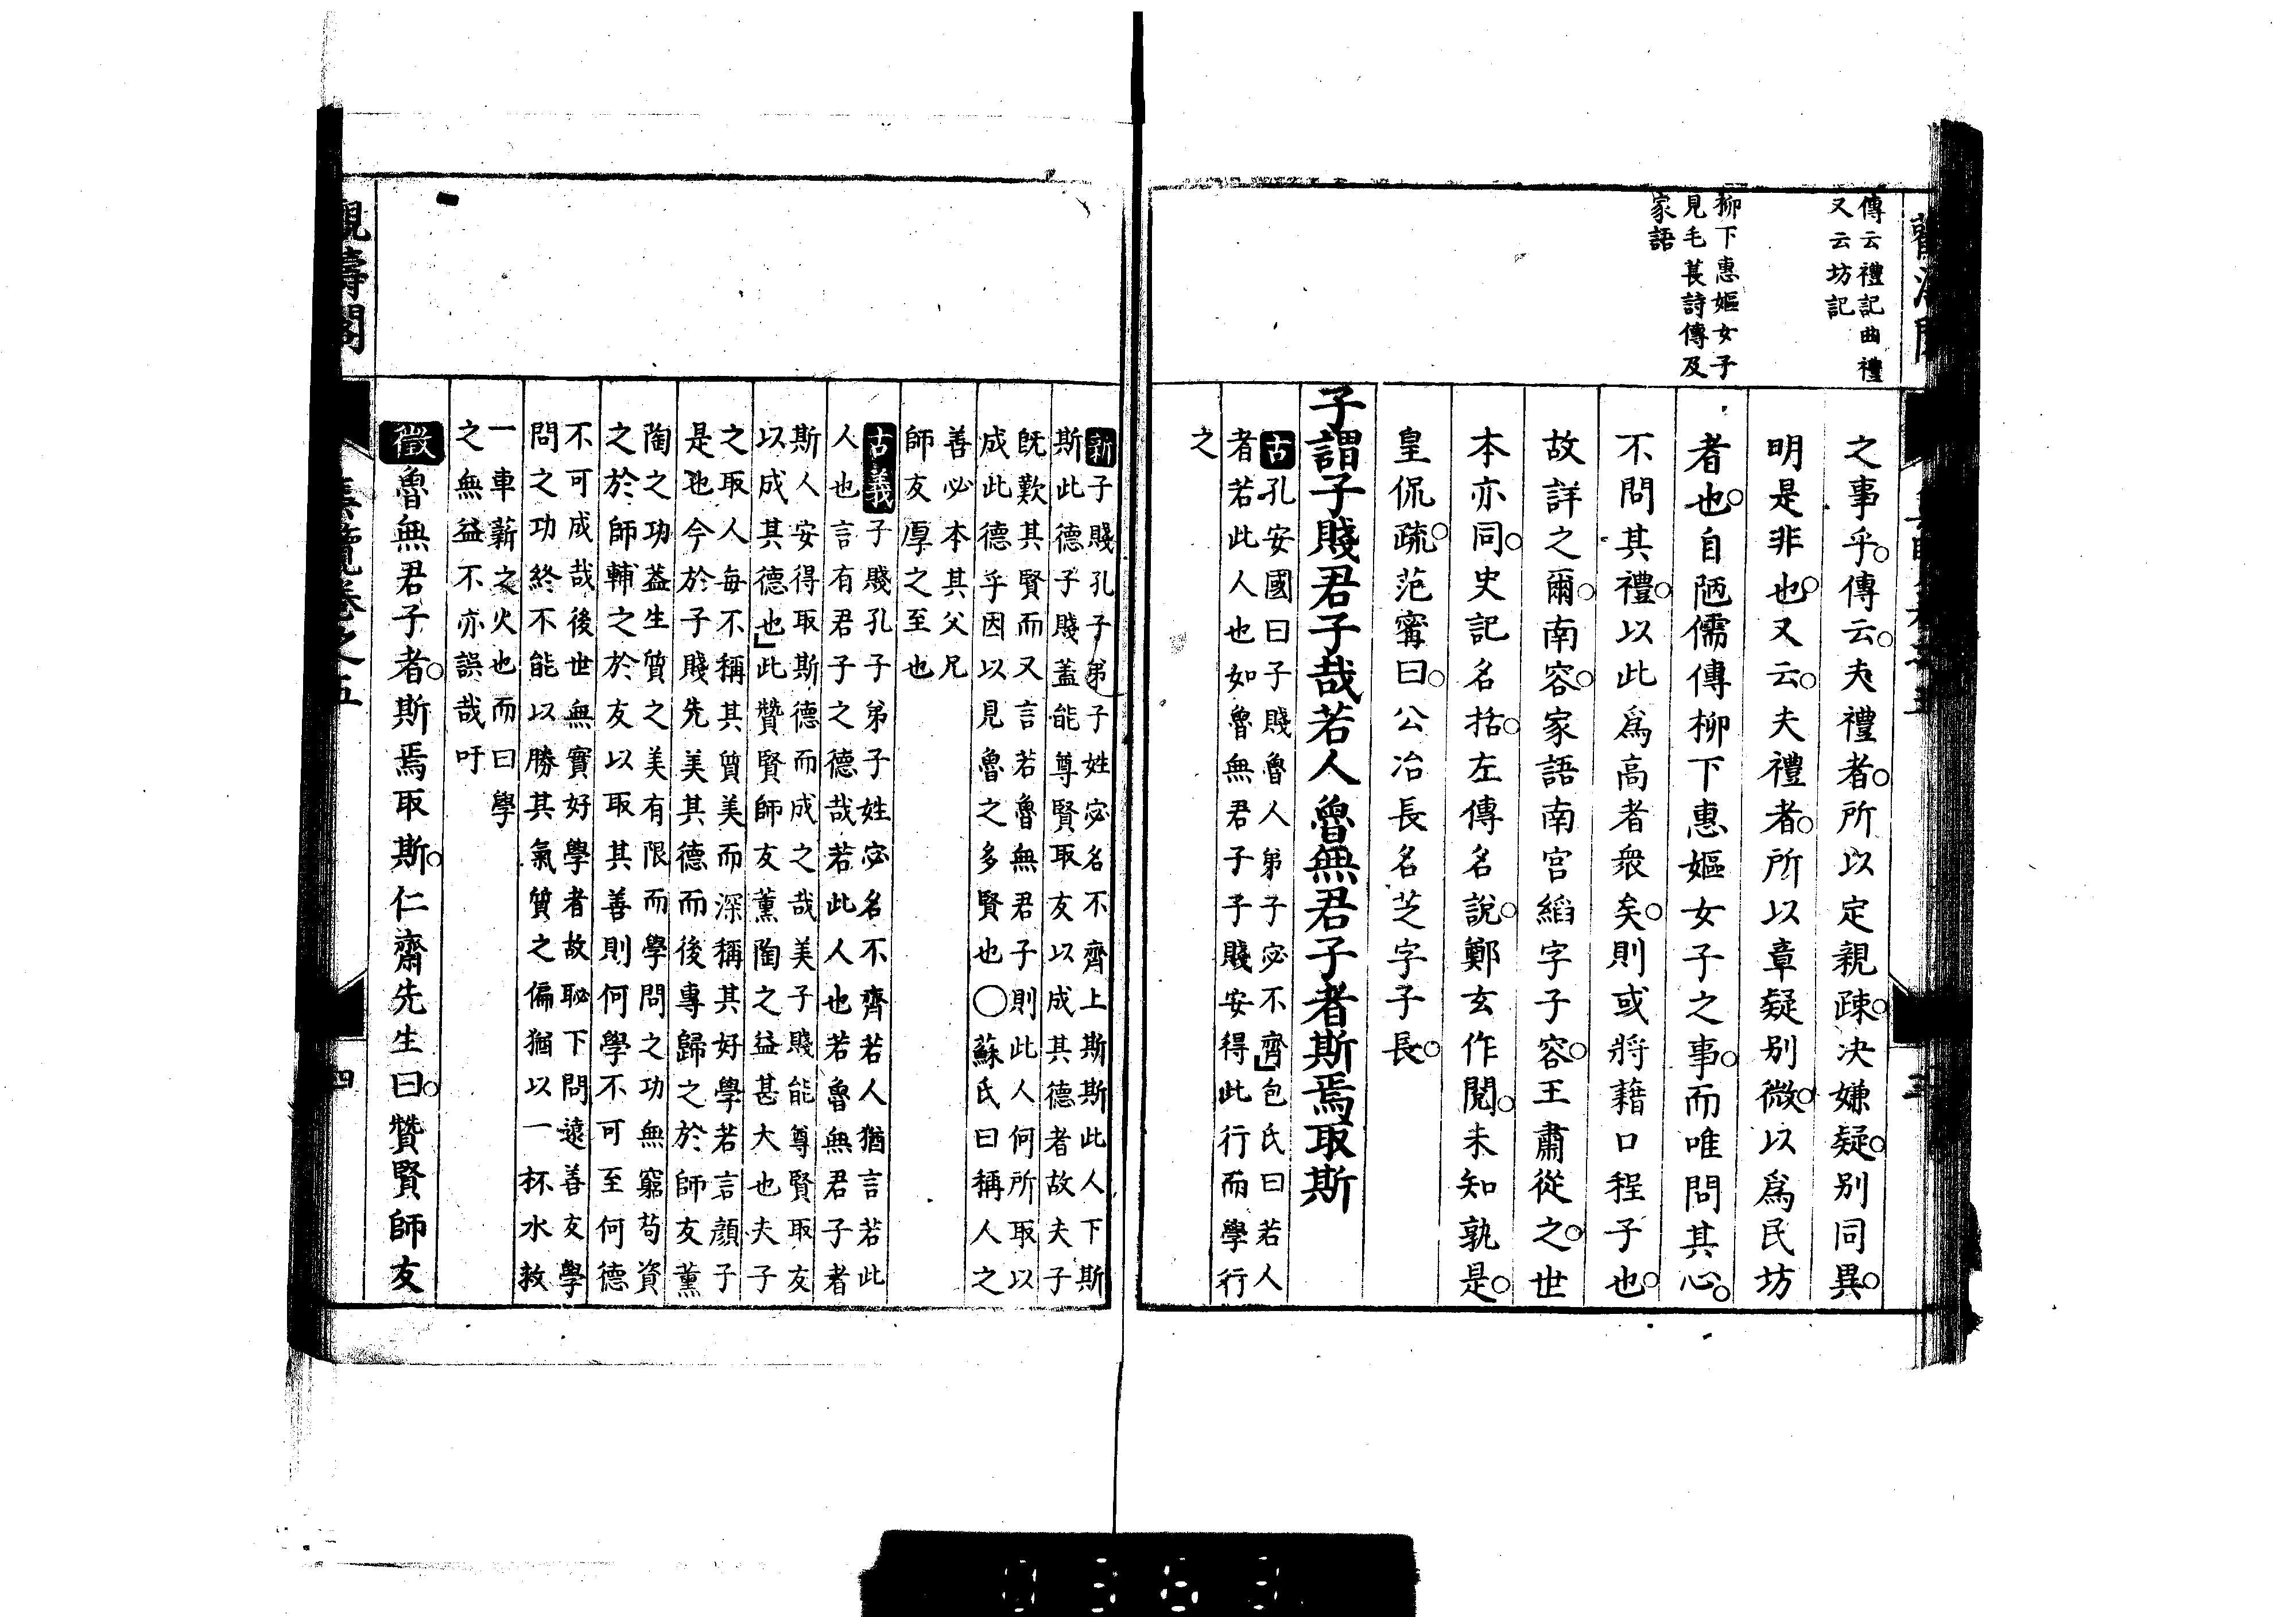 傳云禮記曲禮
又云坊記
柳下惠嫗女子
見毛萇詩傳及
家語
之事乎。傳云。夫禮者。所以定親疎。決嫌疑。別同異。
明是非也。又云。夫禮者。所以章疑別微。以爲民坊
者也。自陋儒傳柳下惠嫗女子之事。而唯問其心。
不問其禮。以此爲高者衆矣。則或將藉口程子也。
故詳之爾。南容。家語南宮縚字子容。王肅從之。世
本亦同。史記名括。左傳名說。鄭玄作閱。未知孰是。
皇侃疏。范甯曰。公冶長名芝字子長。
子謂子賤君子哉若人魯無君子者斯焉取斯
古孔安國曰子賤魯人弟子宓不齊」包氏曰若人
者若此人也如魯無君子子賤安得此行而學行
之
新子賤孔子弟子姓宓名不齊上斯斯此人下斯
斯此德子賤蓋能尊賢取友以成其德者故夫子
既歎其賢而又言若魯無君子則此人何所取以
成此德乎因以見魯之多賢也○蘇氏曰稱人之
善必本其父兄
師友厚之至也
古義子賤孔子弟子姓宓名不齊若人猶言若此
人也言有君子之德哉若此人也若魯無君子者
斯人安得取斯德而成之哉美子賤能尊賢取友
以成其德也」此贊賢師友薰陶之益甚大也夫子
之取人每不稱其質美而深稱其好學若言顏子
是也今於子賤先美其德而後專歸之於師友薰
陶之功蓋生質之美有限而學問之功無窮苟資
之於師輔之於友以取其善則何學不可至何德
不可成哉後世無實好學者故恥下問遠善友學
問之功終不能以勝其氣質之偏猶以一杯水救
一車薪之火也而曰學
之無益不亦誤哉吁
徵魯無君子者。斯焉取斯。仁齋先生曰。贊賢師友
觀濤閣
集覽卷之五
四